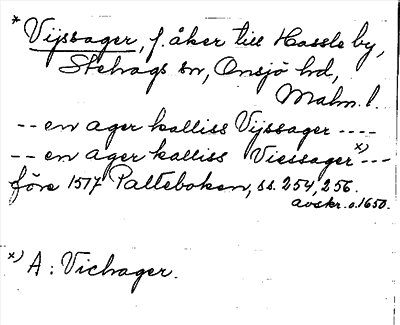 * Vijssager, f. åker till Hassle by,
Stehags sn, Onsjö hd,
Malm. l.
-- en ager kalliss Vijssager ----
-- en ager kalliss Viessager x) ---
före 1517 Palteboken, ss. 254, 256.
avskr. o. 1650.
x) A: Vichager.